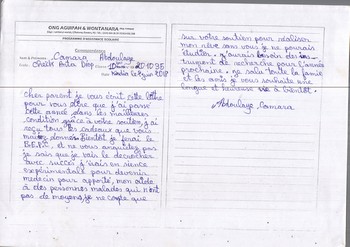 ONG AGUIPAH & WONTANARA
PROGRAMME D'ASSISTANCE SCOLAIRE
Correspondance
Camara Abdoulaye
Cheikh Anta Diop
20.10.95
Kindia le 6 Juin 2018
Cher parent je vous écrit cette lettre
pour vous dire que j'ai passé
cette année dans les meilleures
condition grâce à votre soutien, j'ai
reçu tous les cadeaux que vous
m'avez donné. Bientôt je ferai le
B.E.P.C. et ne vous inquiétez pas
je sais que je vais le décrocher
avec succès j'irais en sience
expérimentale pour devenir
médecin pour apporté, mon aide
à des personnes malades qui n'ont
pas de moyens je ne compte que
sur votre soutien pour réaliser
mon rêve sans vous je ne pourais
étudier. j'aurais besoin des ins-
trument de recherche pour l'année
prochaine. je salu toute la famille
et les amis je vous souhaite une
longue et heureuse vie à bientôt.
Abdoulaye. Camara